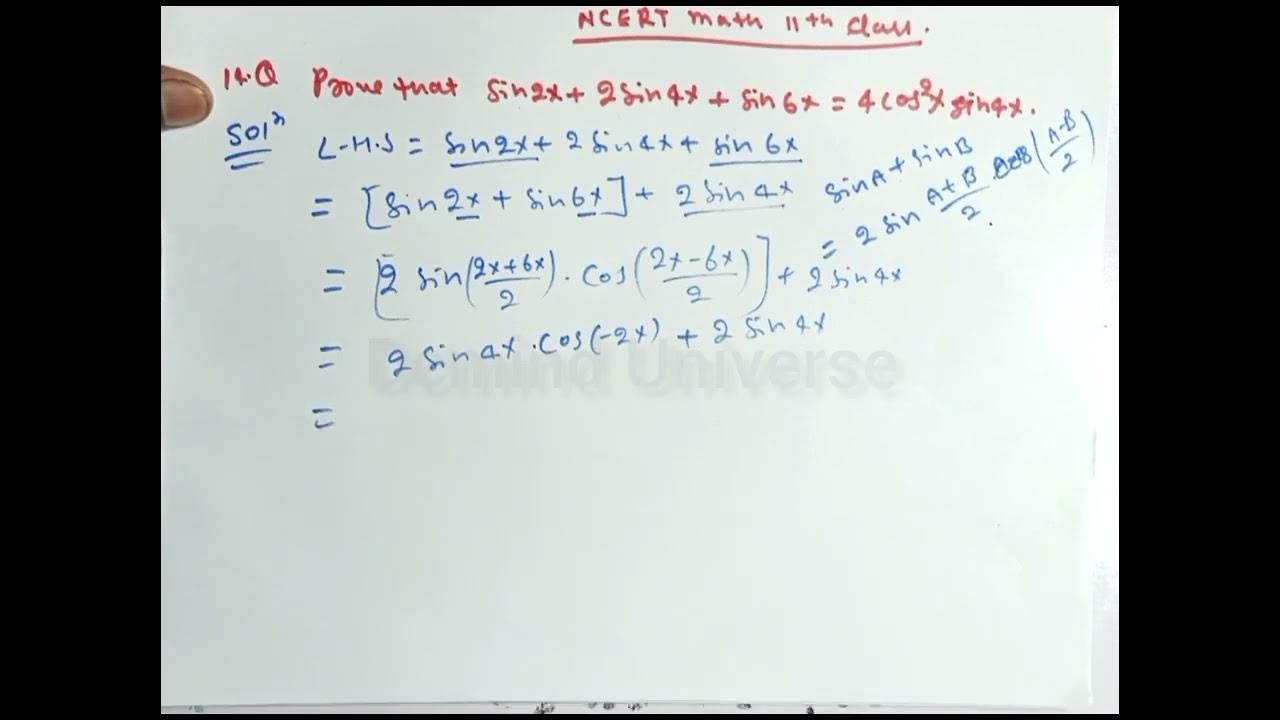 NCERT math 11th class.
14.Q Prove that sin2x + 2sin4x + sin6x = 4cos²x sin4x.
Solⁿ L-H.S = sin2x + 2sin4x + sin6x
= [sin2x + sin6x] + 2sin4x
sinA + sinB
= 2 sin A+B/2 cos(A-B/2).
= [2 sin(2x+6x/2) . cos(2x-6x/2)] + 2sin4x
= 2sin4x.cos(-2x) + 2sin4x
=
Domind Universe